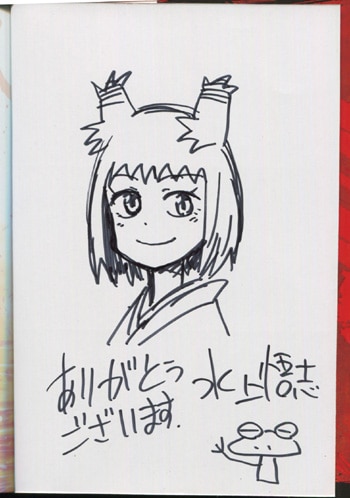 ありがとう
ございます.
水上悟志